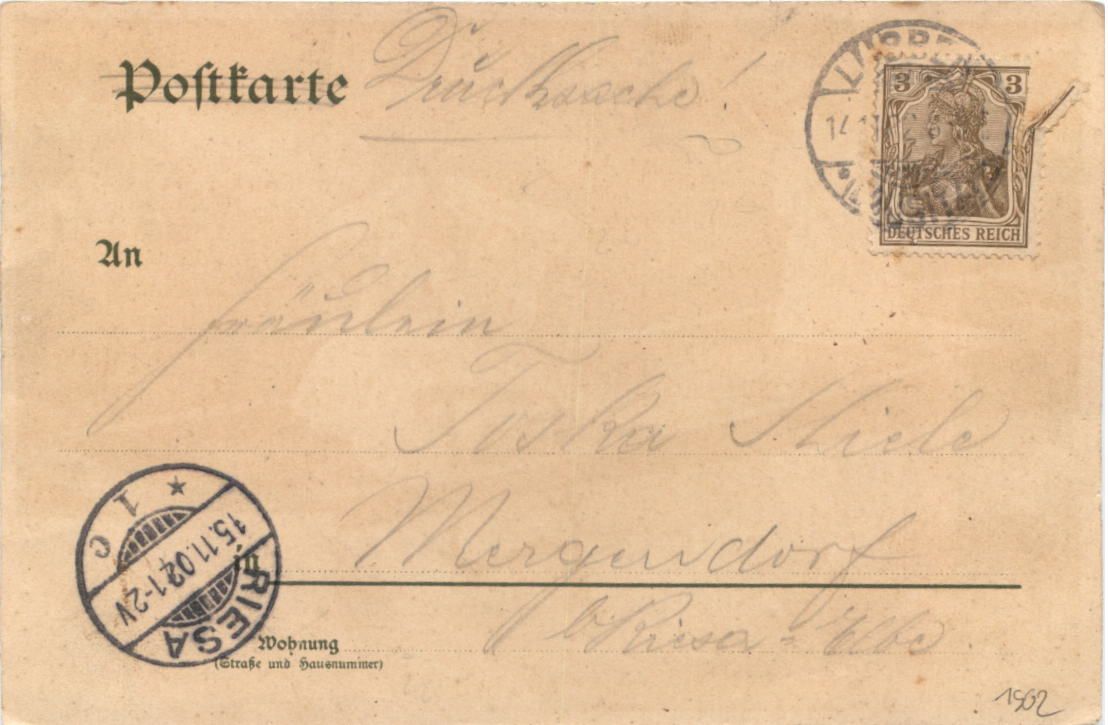 Postkarte
Drucksache!
LÜBBEN
3 3
DEUTSCHES REICH
An
Fräulein
Toska Thiele
in Mergendorf
b/Riesa-Elbe
Wohnung
(Straße und Hausnummer)
RIESA
15.11.02.1-2V
* 1 c
1902